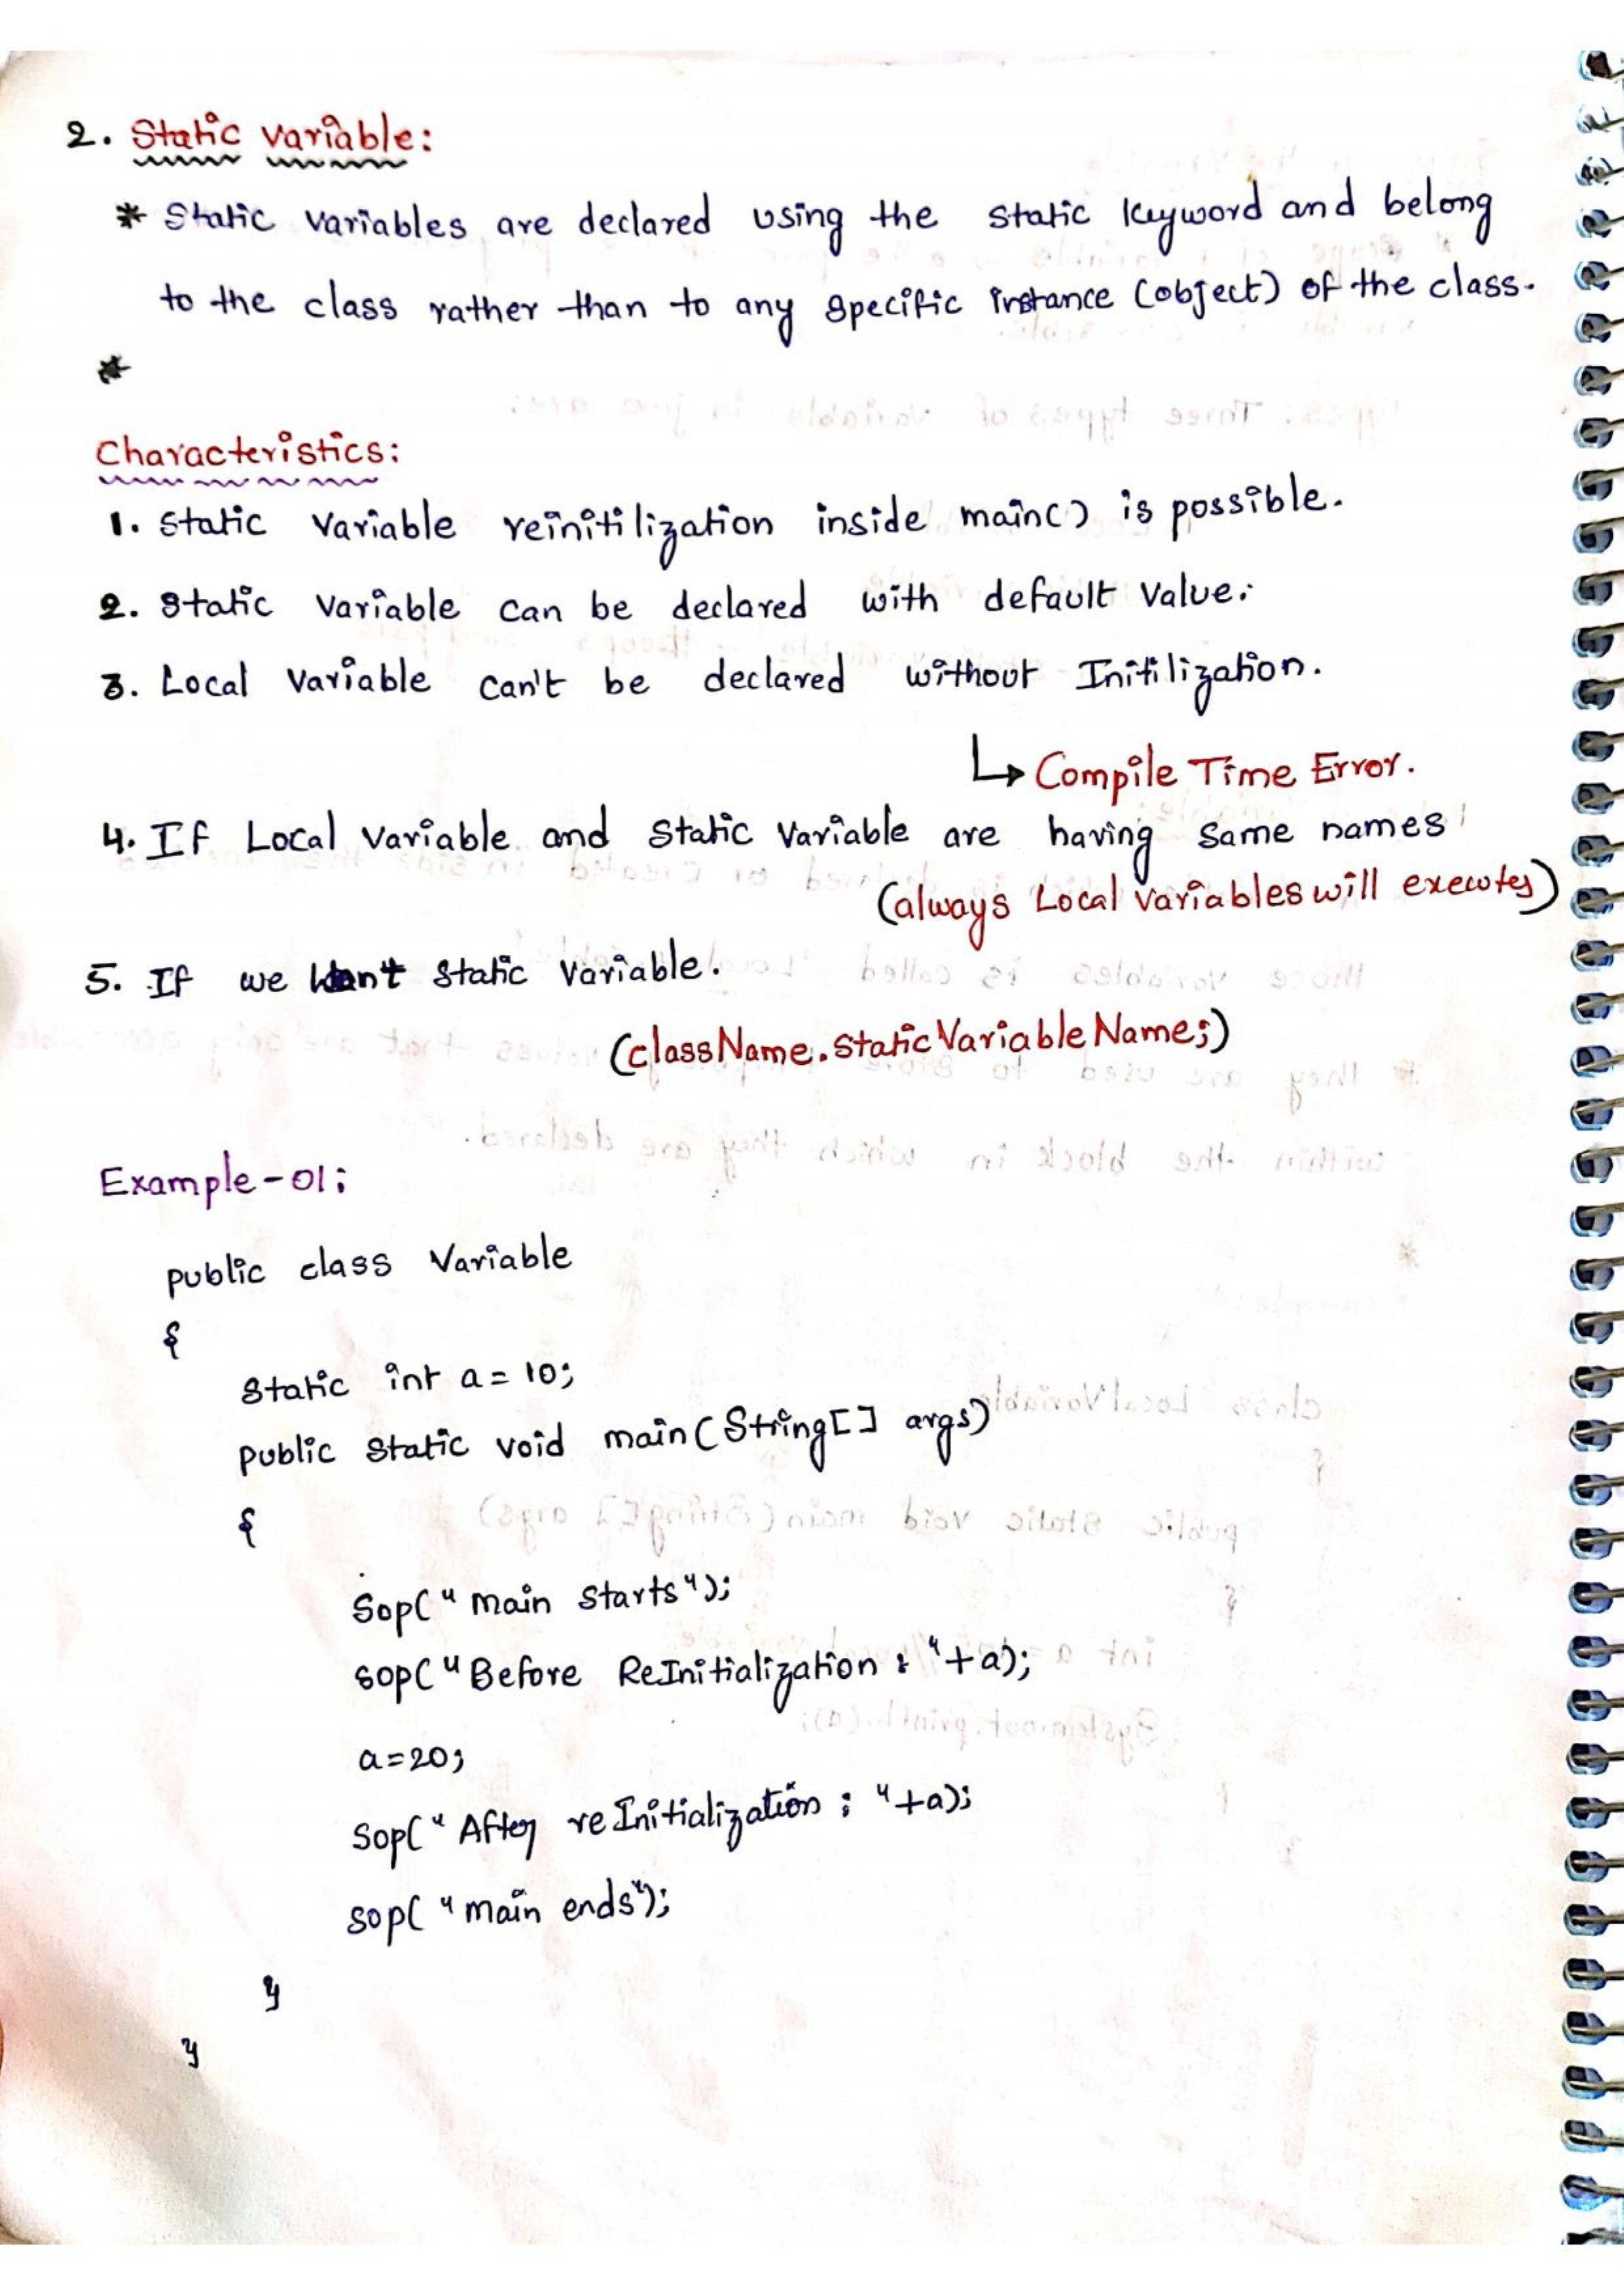 2. Static Variable:
* Static variables are declared using the static keyword and belong
to the class rather than to any specific instance (object) of the class.
*
Characteristics:
1. Static Variable reinitilization inside main() is possible.
2. Static Variable can be declared with default value.
3. Local Variable can't be declared without Initilization.
↳ Compile Time Error.
4. If Local variable and Static Variable are having same names
(always Local variables will executes)
5. If we want static variable.
(className.StaticVariableName;)
Example-01;
public class Variable
{
Static int a = 10;
public static void main(String[] args)
{
Sop("main Starts");
sop("Before ReInitialization : "+a);
a=20;
sop("After reInitialization : "+a);
sop("main ends");
}
}